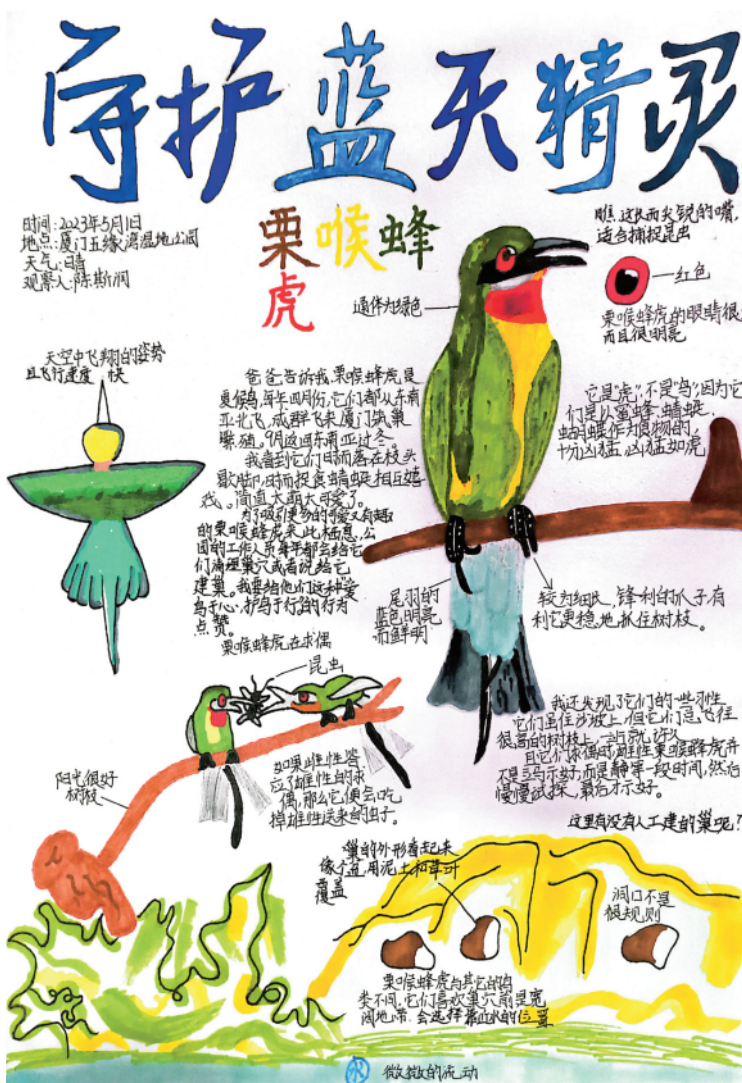 守护蓝天精灵
时间:2023年5月1日
地点:厦门五缘湾湿地公园
天气:晴
观察人:陈斯润
栗喉蜂
虎
瞧,这长而尖锐的嘴,
适合捕捉昆虫
红色
栗喉蜂虎的眼睛很
而且很明亮
通体为绿色
天空中飞翔的姿势
且飞行速度 快
爸爸告诉我,栗喉蜂虎是
夏候鸟,每年四月份,它们都从东南
亚北飞,成群飞来厦门筑巢
繁殖。9月返回东南亚过冬。
我看到它们时而落在枝头
歇脚,时而捉食蜻蜓,相互嬉
戏。简直太萌太可爱了。
为了吸引更多的可爱又有趣
的栗喉蜂虎来此栖息,公
园的工作人员每年都会给它
们清理巢穴或者说给它
建巢。我要给他们这种“爱
鸟于心,护鸟于行”的行为
点赞。
它是“虎”,不是“鸟”,因为它
们是以蜜蜂、蜻蜓、
蛐蝶作为食物的,
十分凶猛,凶猛如虎
尾羽的
蓝色明亮
而鲜明
较为细长,锋利的爪子有
利它更稳地抓住树枝。
栗喉蜂虎在求偶
昆虫
阳光很好
树枝
如果雌性答
应了雄性的求
偶,那么它便会吃
掉雄性送来的虫子。
我还发现了它们的一些习性
它们虽住沙坡上,但它们总飞往
很高的树枝上,一站就许久
且它们求偶时雄性栗喉蜂虎并
不是立马示好,而是静等一段时间,然后
慢慢试探,最后才示好。
这里有没有人工建的巢呢?
巢的外形看起来
像个道,用泥土和草叶
覆盖
洞口不是
很规则
栗喉蜂虎与其它的鸟
类不同,它们喜欢巢穴前是宽
阔地带,会选择靠近水的位置
水 微微的流动